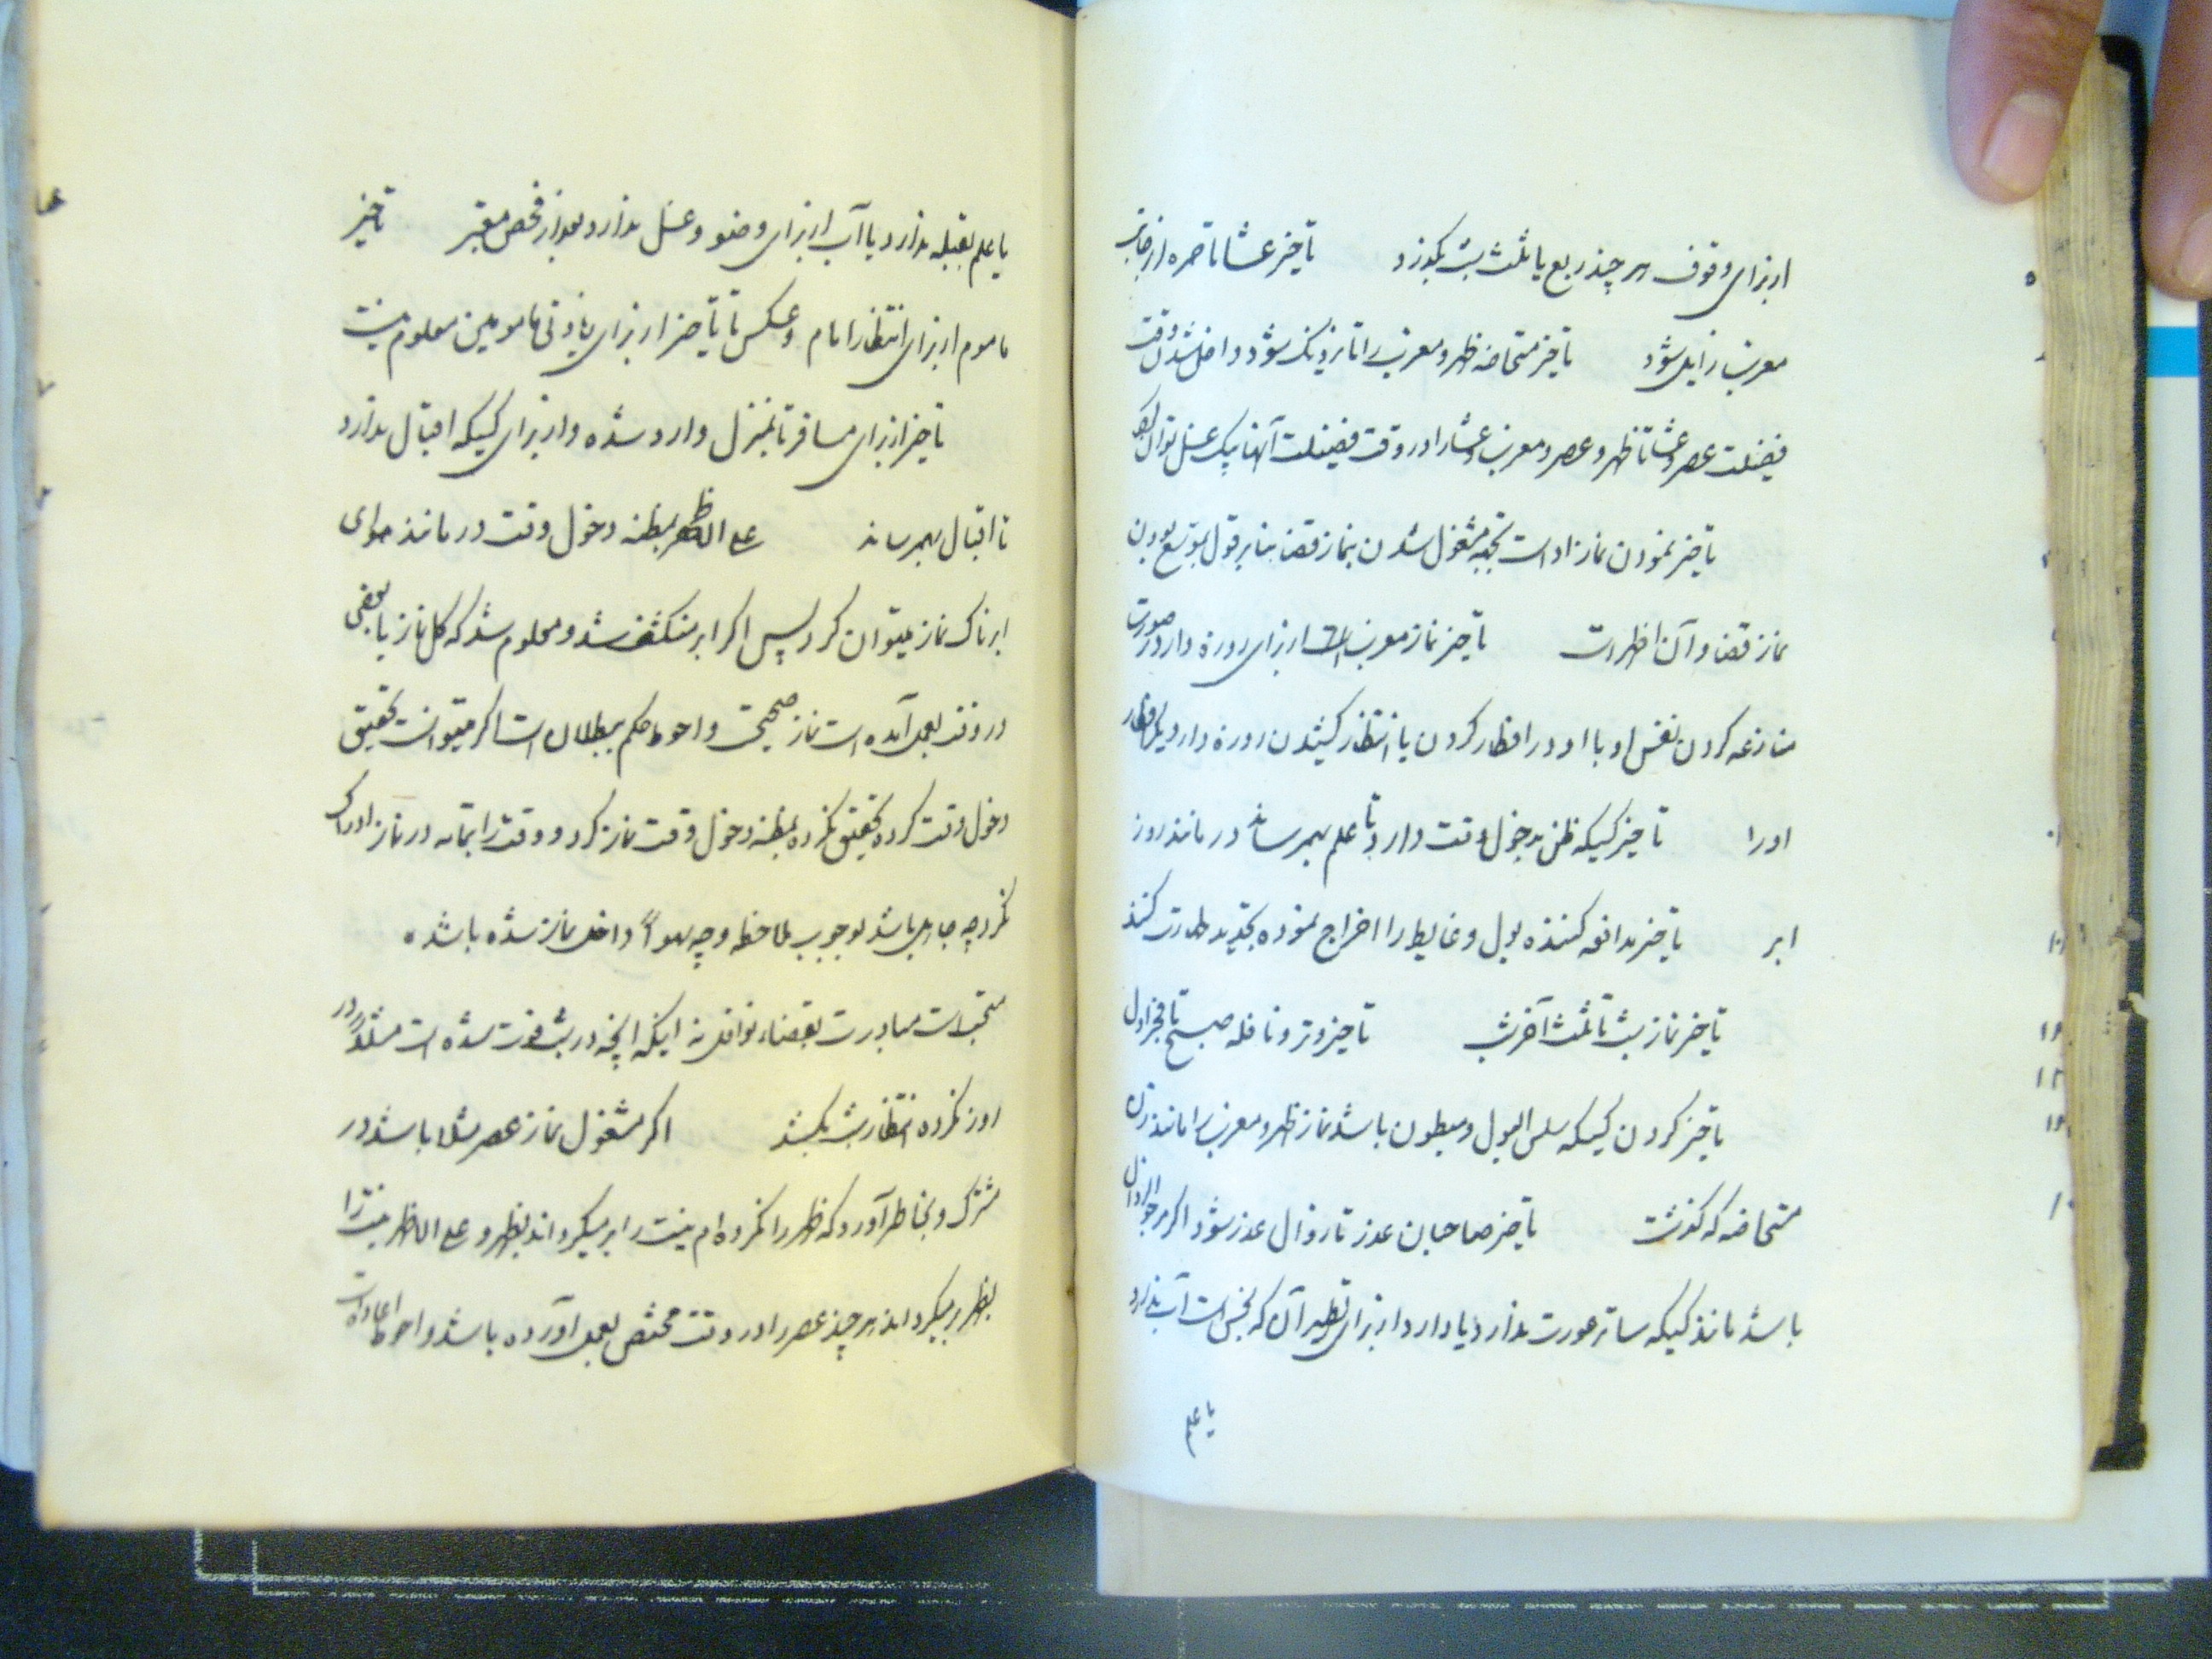 از برای وقوف هر چند ربع یا ثلث شب بگذرد تاخیر عشا تا حمره از جانب
مغرب زایل شود تاخیر مستحاضه ظهر و مغرب را تا نزدیک شود داخل شدن وقت
فضیلت عصر و عشا تا ظهر و عصر و مغرب و عشا را در وقت فضیلت آنها بیک غسل تواند کرد
تاخیر نمودن نماز اداست بجهة مشغول شدن بنماز قضا بنا بر قول بتوسع بودن
نماز قضا و آن اظهر است تاخیر نماز مغرب است از برای روزه دار در صورت
منازعه کردن نفس او با او در افطار کردن یا انتظار کشیدن روزه دار دیگر افطار
او را تاخیر کسیکه ظن بدخول وقت دارد تا علم بهمرساند در مانند روز
ابر تاخیر مدافعه کننده بول و غایط را اخراج نموده تجدید طهارت کند
تاخیر نماز شب تا ثلث آخر شب تاخیر وتر و نافله صبح تا فجر اول
تاخیر کردن کسیکه سلس البول و مبطون باشد نماز ظهر و مغرب را مانند زن
مستحاضه که گذشت تاخیر صاحبان عذر تا زوال عذر شود اگر مرجو الزوال
باشد مانند کسیکه ساتر عورت ندارد یا دارد از برای تطهیر آن که نجس است آب ندارد
یا علم
یا علم بقبله ندارد یا آب از برای وضو و غسل ندارد بعد از فحص معتبر تاخیر
ماموم از برای انتظار امام و عکس تا تاخیر از برای زیادتی مامومین معلوم نیست
تاخیر از برای مسافر تا بمنزل وارد شده و از برای کسیکه اقبال ندارد
تا اقبال بهمرساند علی الاظهر بمظنه دخول وقت در مانند هوای
ابرناک نماز میتوان کرد پس اگر ابر منکشف شد و معلوم شد که کل نماز یا بعضی
در وقت بعمل آمده است نماز صحیحست و احوط حکم ببطلان است اگر میتوانست تحقیق
دخول وقت کرده تحقیق نکرده بمظنه دخول وقت نماز کرد و وقت را بتمامه در نماز ادراک
نکرد چه جاهل باشد بوجوب ملاحظه و چه سهوا داخل نماز شده باشد
مستحب است مبادرت بقضاء نوافل نه اینکه آنچه در شب فوت شده است مثلا در
روز نکرده انتظار شب بکشد اگر مشغول نماز عصر مثلا باشد در
مشترک و بخاطر آورد که ظهر را نکرده ام نیت را بر میگرداند بظهر و علی الاظهر نیت را
بظهر بر میگرداند هر چند عصر را در وقت مختص بعمل آورده باشد و احوط اعاده است